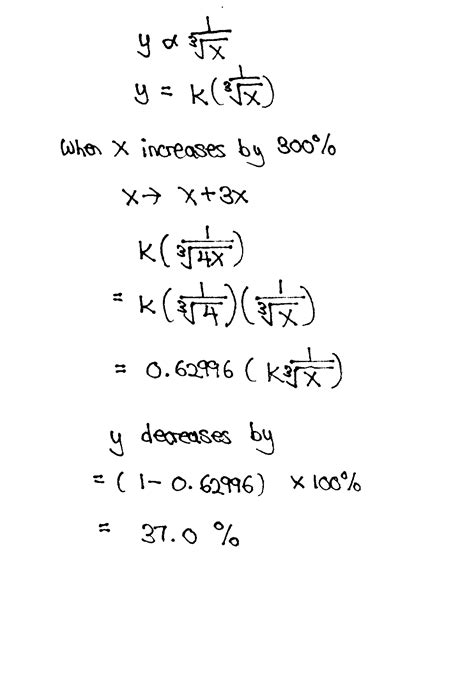 y ∝ 1/∛x
y = k(1/∛x)
When x increases by 300%
x → x+3x
k(1/∛4x)
= k(1/∛4)(1/∛x)
= 0.62996 (k 1/∛x)
y decreases by
= (1 - 0.62996) × 100%
= 37.0 %